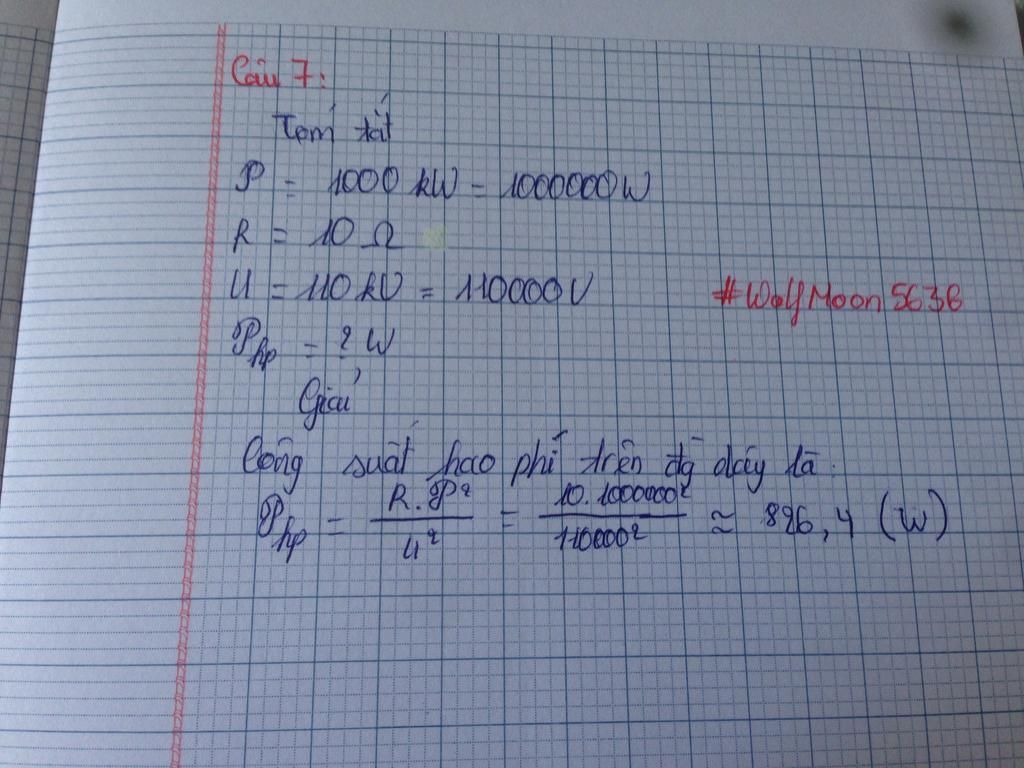 Câu 7:
Tóm tắt
P = 1000 kW = 1000000W
R = 10 Ω
U = 110 kV = 110000V
#WolfMoon5636
Php = ? W
Giải
Công suất hao phí trên đg dây là:
Php = R.P² / U² = 10.1000000² / 110000² ≈ 826,4 (W)